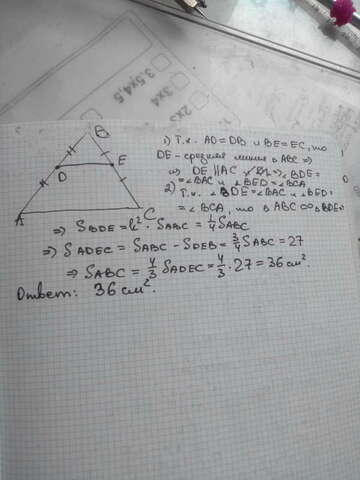 3.5x4,5
3x
2x
B
D
E
A
C
1) Т.к. AD=DB и BE=EC, то
DE - средняя линия в ABC =>
=> DE || AC => ∠BDE=
=∠BAC и ∠BED=∠BCA
2) Т.к. ∠BDE=∠BAC и ∠BED=
=∠BCA, то △ABC ∞ △BDE=>
=> S BDE = k²· S ABC = 1/4 S ABC
=> S ADEC = S ABC - S DEB = 3/4 S ABC = 27
=> S ABC = 4/3 S ADEC = 4/3 · 27 = 36 см².
Ответ: 36 см².